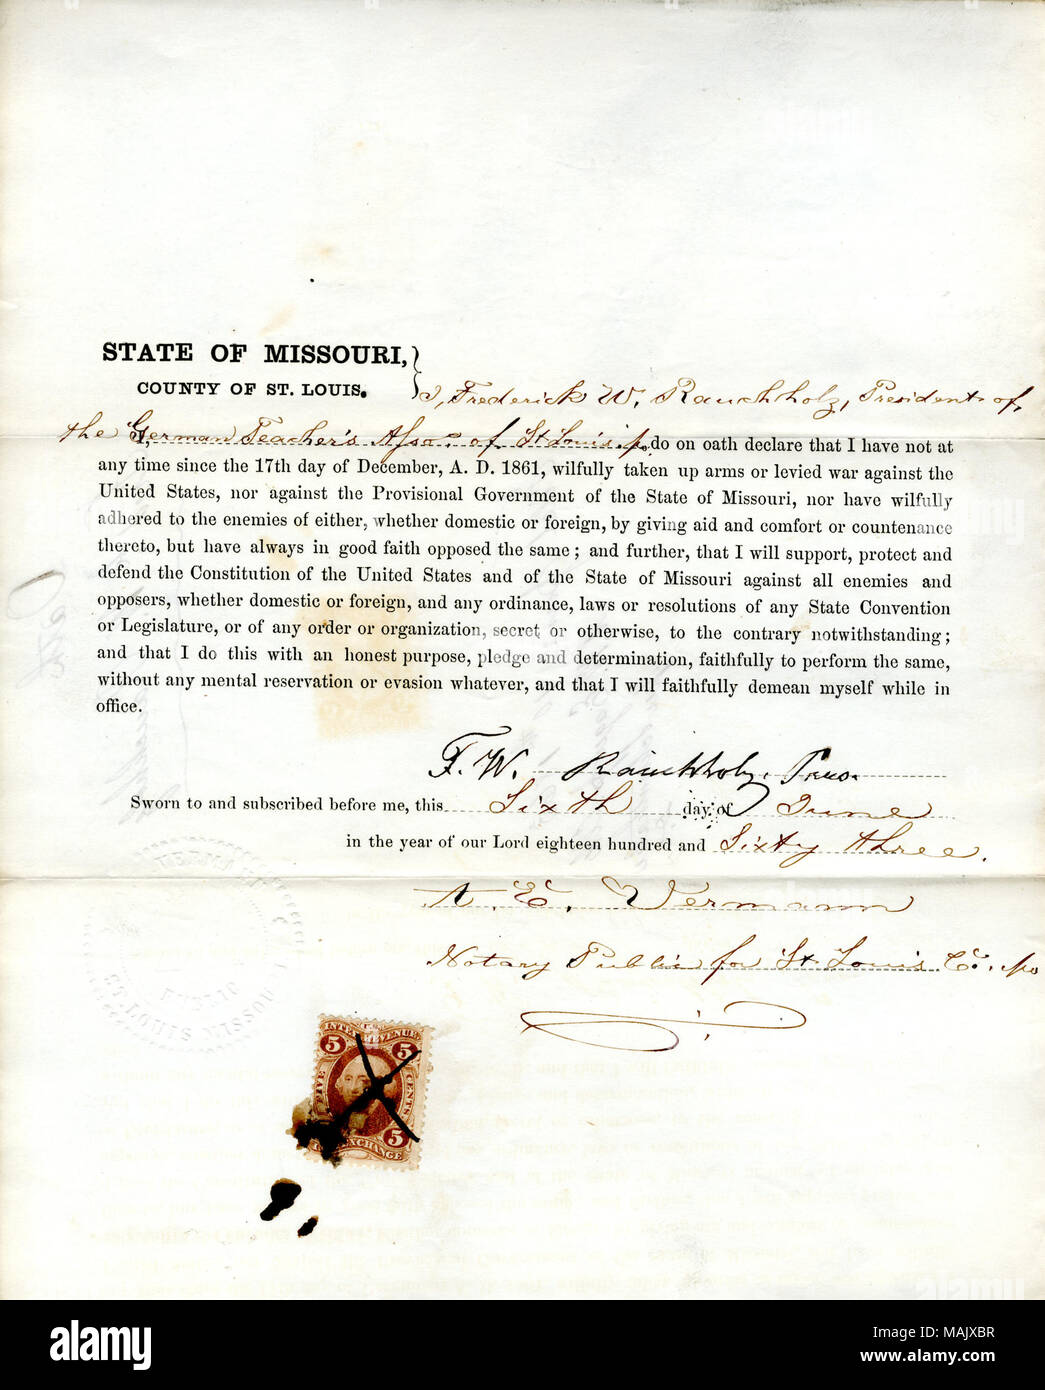 STATE OF MISSOURI,
COUNTY OF ST. LOUIS.
I, Frederick W. Rauchholz, President of
the German Teacher's Asso. of St Louis Mo do on oath declare that I have not at
any time since the 17th day of December, A. D. 1861, wilfully taken up arms or levied war against the
United States, nor against the Provisional Government of the State of Missouri, nor have wilfully
adhered to the enemies of either, whether domestic or foreign, by giving aid and comfort or countenance
thereto, but have always in good faith opposed the same; and further, that I will support, protect and
defend the Constitution of the United States and of the State of Missouri against all enemies and
opposers, whether domestic or foreign, and any ordinance, laws or resolutions of any State Convention
or Legislature, or of any order or organization, secret or otherwise, to the contrary notwithstanding;
and that I do this with an honest purpose, pledge and determination, faithfully to perform the same,
without any mental reservation or evasion whatever, and that I will faithfully demean myself while in
office.
F. W. Rauchholz, Pres.
Sworn to and subscribed before me, this Sixth day of June
in the year of our Lord eighteen hundred and Sixty three.
A. E. Vermann
Notary Public for St Louis Co. Mo
PUBLIC
ST. LOUIS MISSOURI
INTER. REVENUE
5 5
FIVE CENTS
5 5
EXCHANGE
alamy
alamy
Image ID: MAJXBR
www.alamy.com